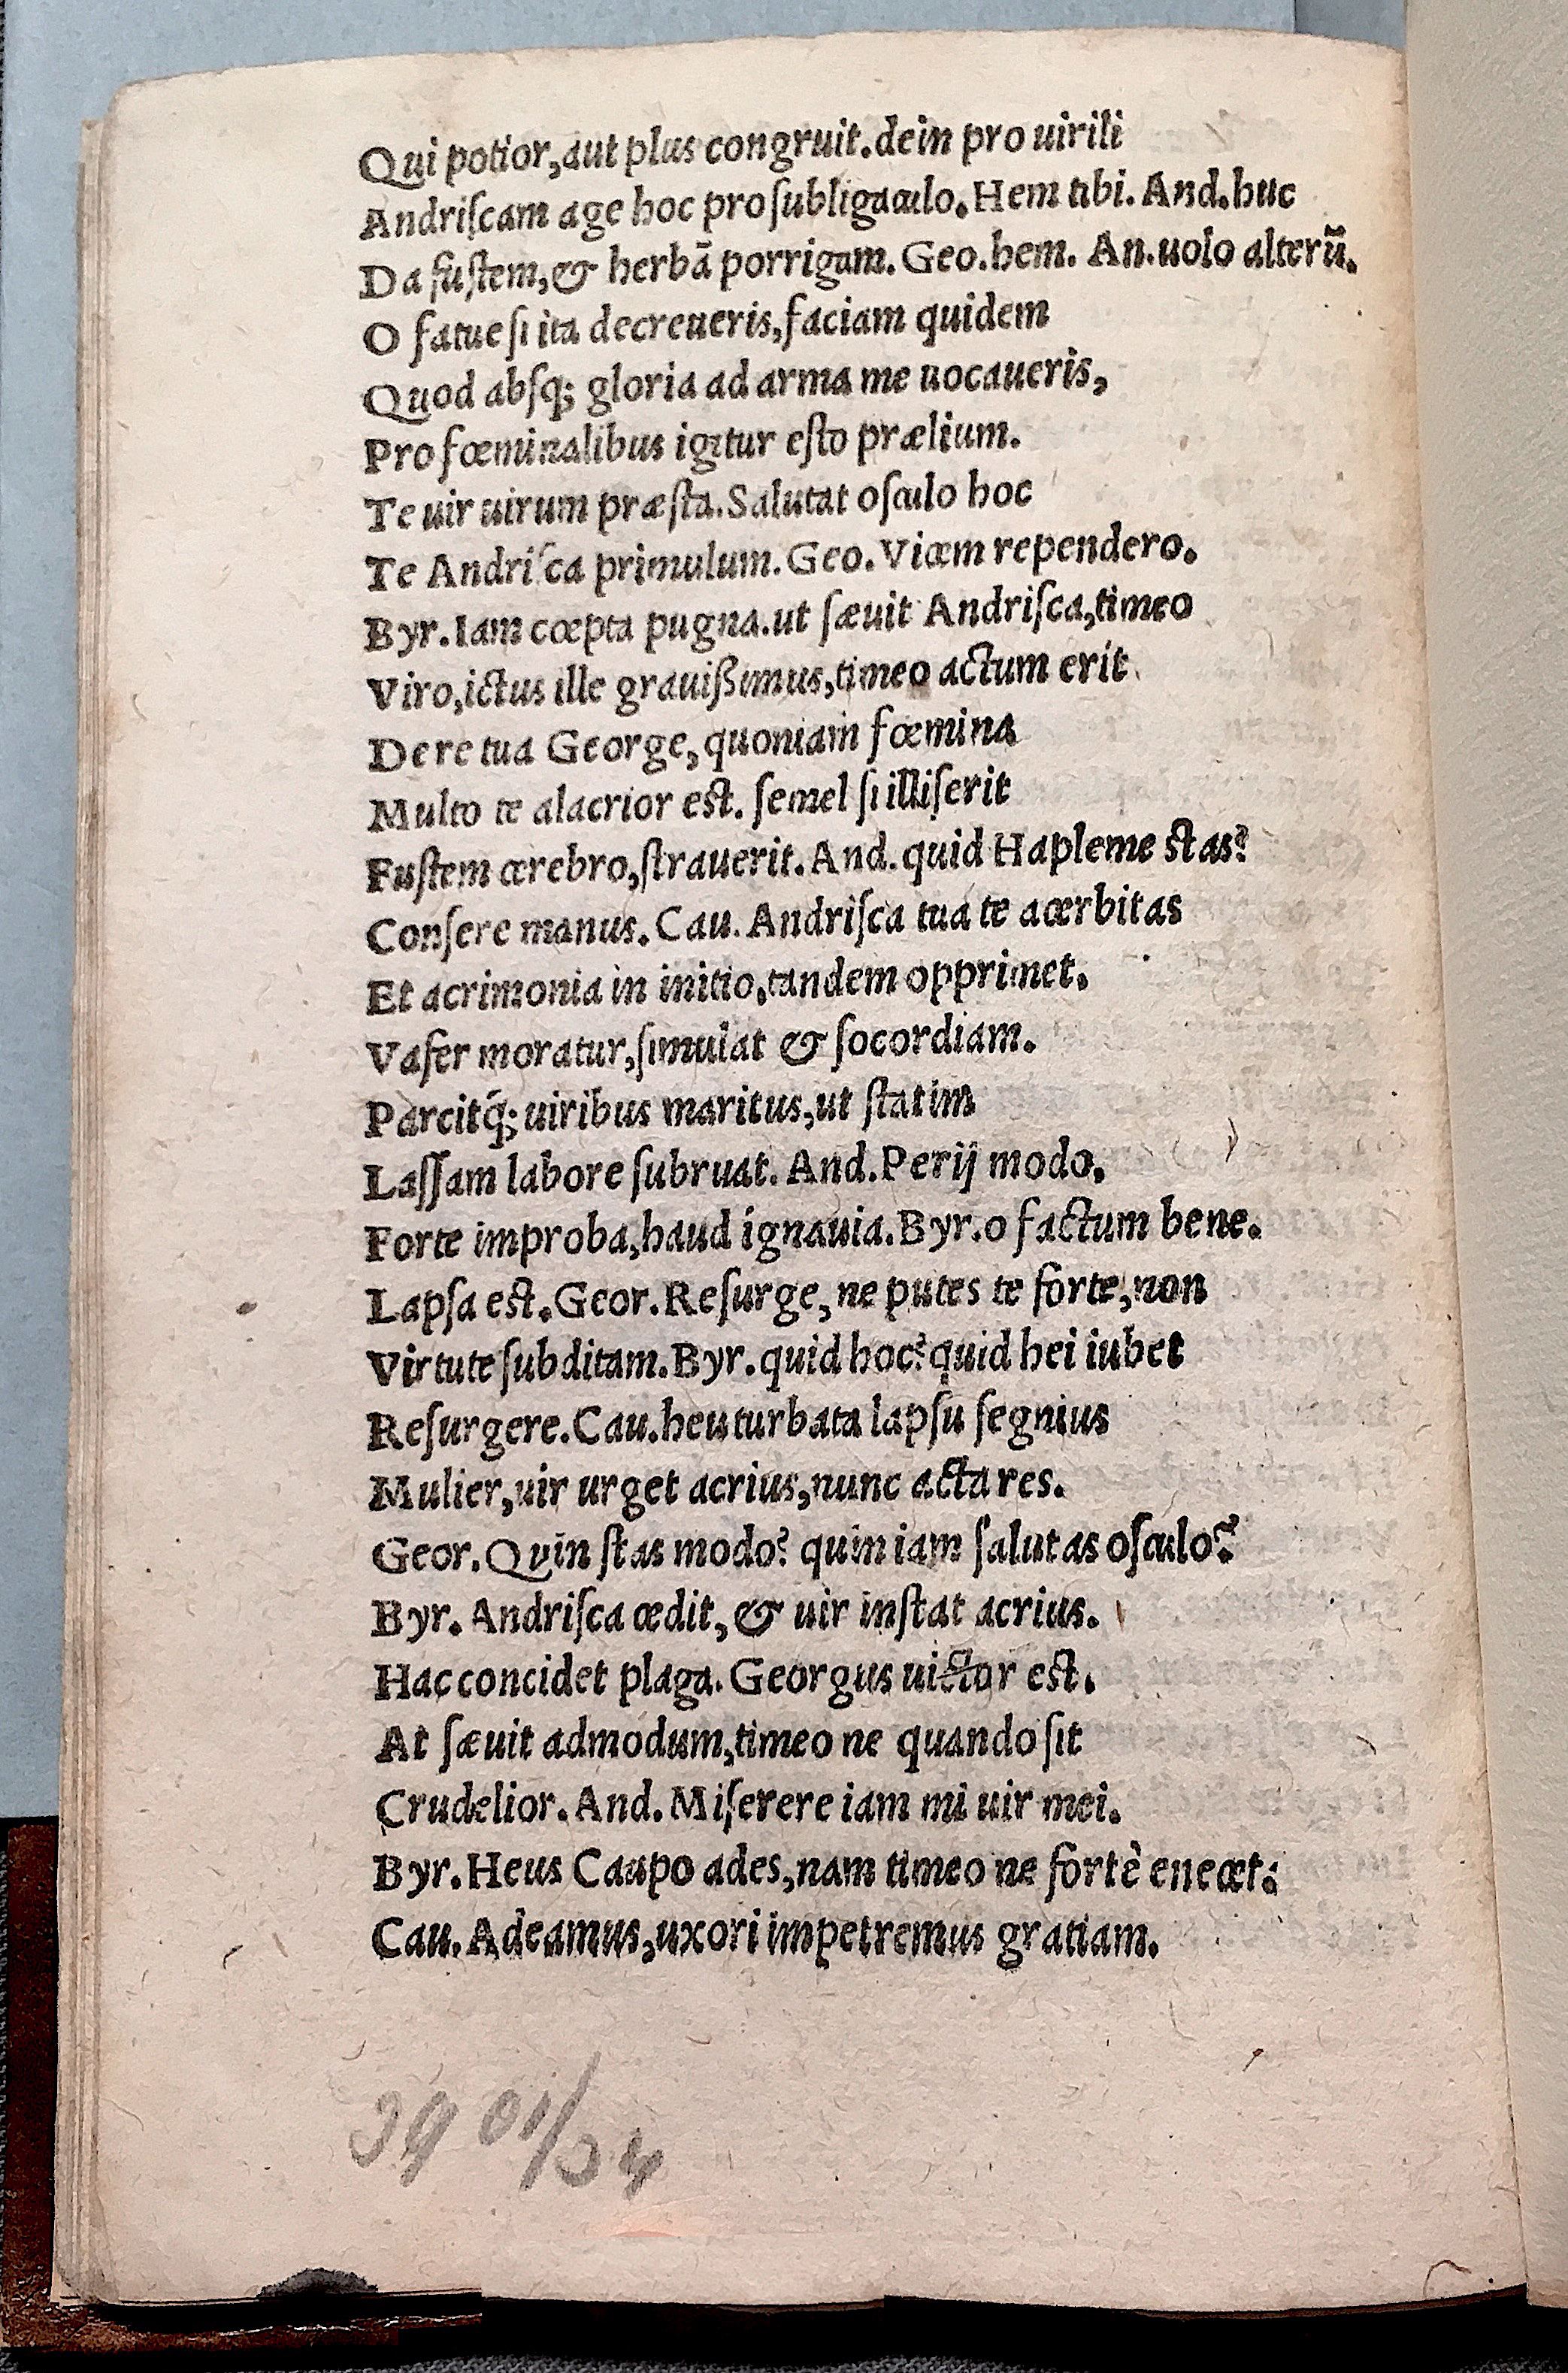 Qui potior, aut plus congruit. dein pro uirili
Andriſcam age hoc pro ſubligaculo. Hem tibi. And. huc
Da fuſtem, & herbā porrigam. Geo. hem. An. uolo alterū.
O fatue ſi ita decreueris, faciam quidem
Quod abſq; gloria ad arma me uocaueris,
Pro fœminalibus igitur eſto prælium.
Te uir uirum præſta. Salutat oſculo hoc
Te Andriſca primulum. Geo. Vicem rependero.
Byr. Iam cœpta pugna. ut ſæuit Andriſca, timeo
Viro, ictus ille grauißimus, timeo actum erit
De re tua George, quoniam fœmina
Multo te alacrior est. ſemel ſi illiſerit
Fuſtem cerebro, ſtrauerit. And. quid Hapleme stas?
Conſere manus. Cau. Andriſca tua te acerbitas
Et acrimonia in initio, tandem opprimet.
Vafer moratur, ſimulat & ſocordiam.
Parcitq́; uiribus maritus, ut ſtatim
Laſſam labore ſubruat. And. Perij modo,
Forte improba, haud ignauia. Byr. o factum bene.
Lapſa est. Geor. Reſurge, ne putes te forte, non
Virtute ſubditam. Byr. quid hoc? quid hei iubet
Reſurgere. Cau. heu turbata lapſu ſegnius
Mulier, uir urget acrius, nunc acta res.
Geor. Quin ſtas modo? quin iam ſalutas oſculo?
Byr. Andriſca cedit, & uir inſtat acrius.
Hac concidet plaga. Georgus uictor est.
At ſæuit admodum, timeo ne quando ſit
Crudelior. And. Miſerere iam mi uir mei.
Byr. Heus Caupo ades, nam timeo ne fortè enecet:
Cau. Adeamus, uxori impetremus gratiam.
39 01/54